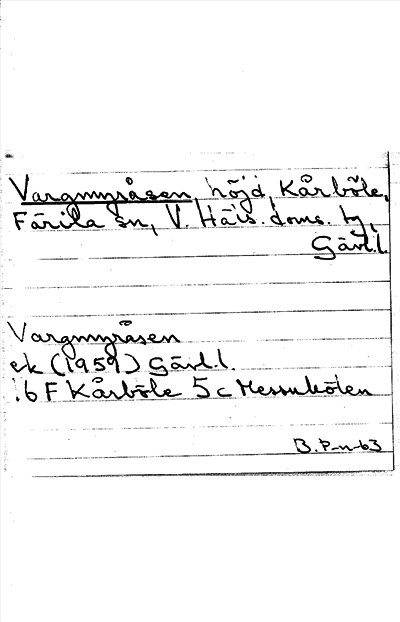 Vargmyråsen, höjd, Kårböle,
Färila sn, V. Häls. doms. tg,
Gävl.l.
Vargmyråsen
ek (1959) Gävl.l.
16 F Kårböle 5c Messuböten
B. P-n-63